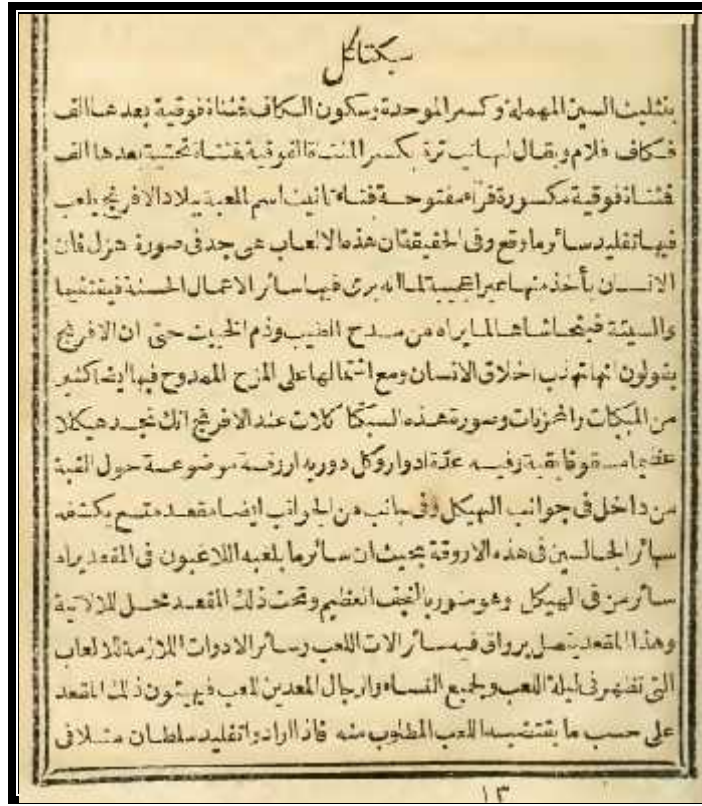 سبكتاكل
بتثليث السين المهملة وكسر الموحدة وسكون الكاف فمثناة فوقية بعدها الف
فكاف فلام ويقال لها تياترة بكسر المثناة الفوقية فمثناة تحتية بعدها الف
فمثناة فوقية مكسورة فراء مفتوحة فتاء تانيث اسم للعبة ببلاد الافرنج يلعب
فيها تقليد سائر ما وقع وفى الحقيقة ان هذه الالعاب هى جد فى صورة هزل فان
الانسان يأخذ منها عبرا عجيبة لما انه يرى فيها سائر الاعمال الحسنة فيقتفيها
والسيئة فيتحاشاها لما يراه من مدح الطيب وذم الخبيث حتى ان الافرنج
يقولون انها تهذب اخلاق الانسان ومع اشتمالها على المزح الممدوح فيها ايضا كثير
من المبكات والمحزنات وصورة هذه السبكتا كلات عند الافرنج انك تجد هيكلا
عظيما مسقوفا بقبة وفيه عدة ادوار وكل دور به اروقة موضوعة حول القبة
من داخل فى جوانب الهيكل وفى جانب من الجوانب ايضا مقعد متسع يكشفه
سائر الجالسين فى هذه الاروقة بحيث ان سائر ما يلعبه اللاعبون فى المقعد يراه
سائر من فى الهيكل وهو منور بالنجف العظيم وتحت ذلك المقعد محل للالاتية
وهذا المقعد يتصل برواق فيه سائر الات اللعب وسائر الادوات اللازمة للالعاب
التى تظهر فى ليلة اللعب ولجميع النساء والرجال المعدين للعب فيهيئون ذلك المقعد
على حسب ما يقتضيه اللعب المطلوب منه فاذا ارادوا تقليد سلطان مثلا فى
١٣